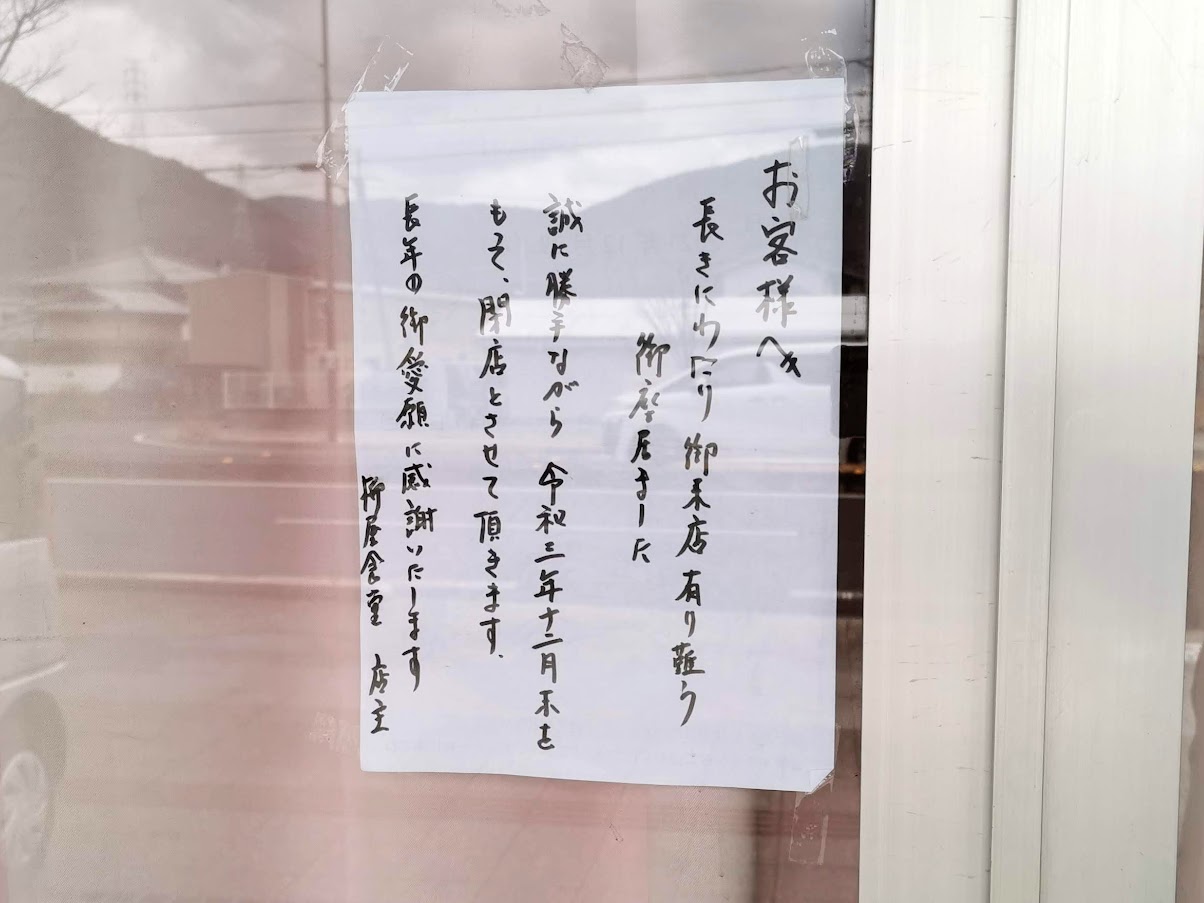 お客様へ
長きにわたり御来店有り難う
御座居ました
誠に勝手ながら 令和三年十二月末を
もそ、閉店とさせて頂きます、
長年の御愛願に感謝いたします
柳屋食堂 店主